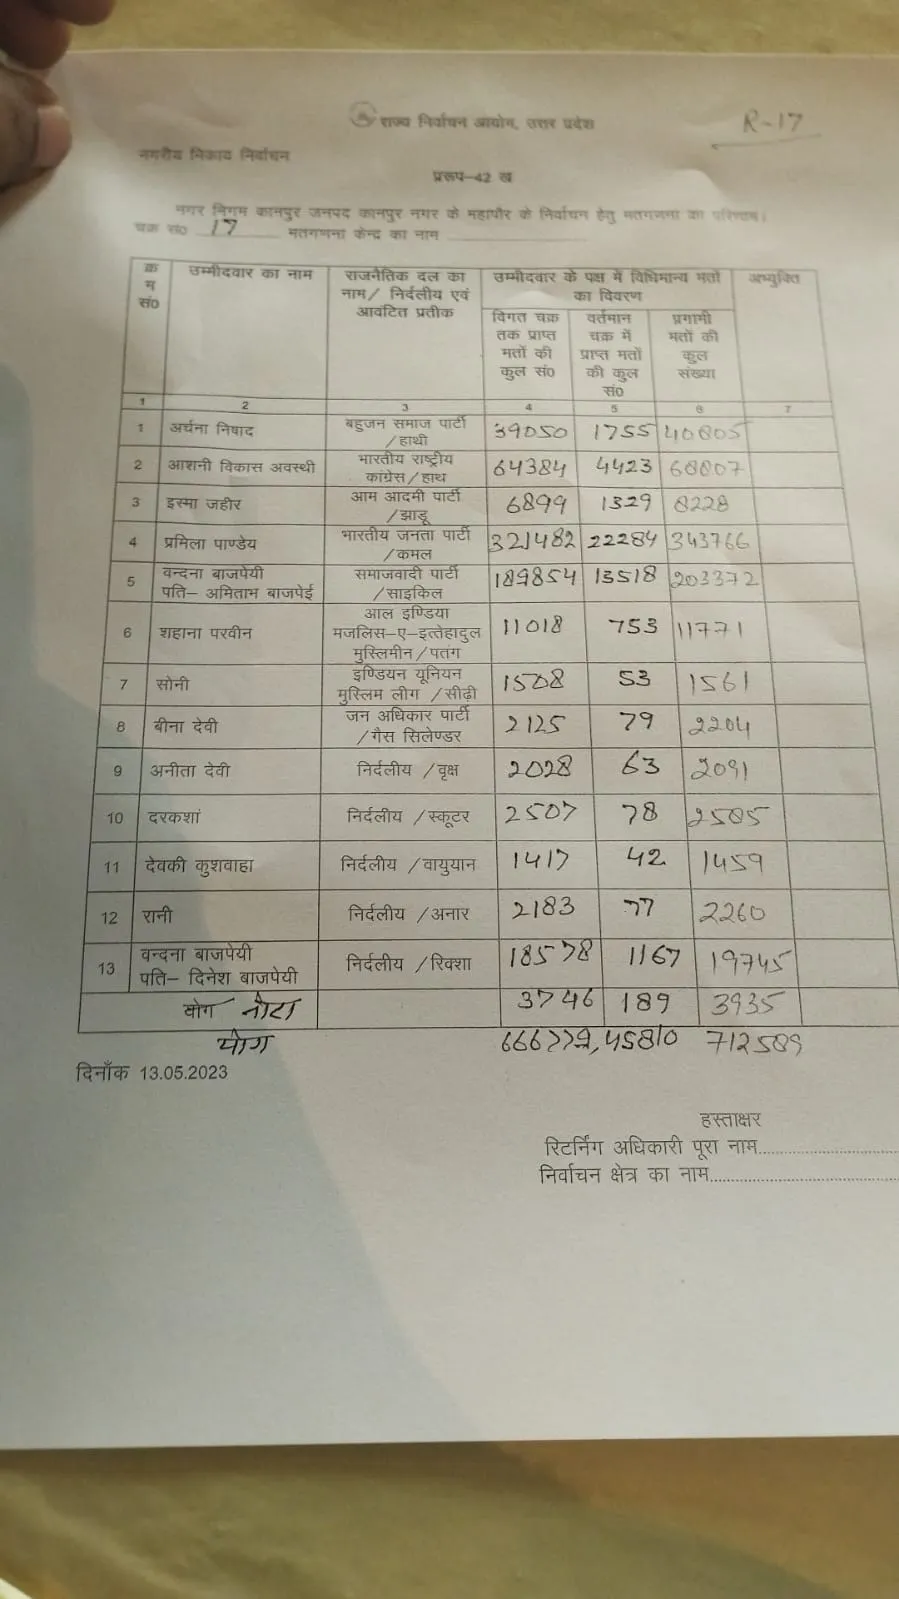 राज्य निर्वाचन आयोग, उत्तर प्रदेश
R-17
नगरीय निकाय निर्वाचन
प्ररूप-42 ख
नगर निगम कानपुर जनपद कानपुर नगर के महापौर के निर्वाचन हेतु मतगणना का परिणाम।
चक्र सं0 17 मतगणना केन्द्र का नाम
क्रम सं0 उम्मीदवार का नाम राजनैतिक दल का नाम/ निर्दलीय एवं आवंटित प्रतीक उम्मीदवार के पक्ष में विधिमान्य मतों का विवरण अभ्युक्ति
विगत चक्र तक प्राप्त मतों की कुल सं0 वर्तमान चक्र में प्राप्त मतों की कुल सं0 प्रगामी मतों की कुल संख्या
1 2 3 4 5 6 7
1 अर्चना निषाद बहुजन समाज पार्टी /हाथी 39050 1755 40805
2 आशनी विकास अवस्थी भारतीय राष्ट्रीय कांग्रेस/हाथ 64384 4423 68807
3 इस्मा जहीर आम आदमी पार्टी /झाडू 6899 1329 8228
4 प्रमिला पाण्डेय भारतीय जनता पार्टी /कमल 321482 22284 343766
5 वन्दना बाजपेयी पति- अमिताभ बाजपेई समाजवादी पार्टी /साइकिल 189854 13518 203372
6 शहाना परवीन आल इण्डिया मजलिस-ए-इत्तेहादुल मुस्लिमीन/पतंग 11018 753 11771
7 सोनी इण्डियन यूनियन मुस्लिम लीग /सीढ़ी 1508 53 1561
8 बीना देवी जन अधिकार पार्टी /गैस सिलेण्डर 2125 79 2204
9 अनीता देवी निर्दलीय /वृक्ष 2028 63 2091
10 दरकशां निर्दलीय /स्कूटर 2507 78 2585
11 देवकी कुशवाहा निर्दलीय /वायुयान 1417 42 1459
12 रानी निर्दलीय /अनार 2183 77 2260
13 वन्दना बाजपेयी पति- दिनेश बाजपेयी निर्दलीय /रिक्शा 18578 1167 19745
योग नोटा 3746 189 3935
योग 666779, 45810 712589
दिनाँक 13.05.2023
हस्ताक्षर
रिटर्निंग अधिकारी पूरा नाम..............................
निर्वाचन क्षेत्र का नाम....................................